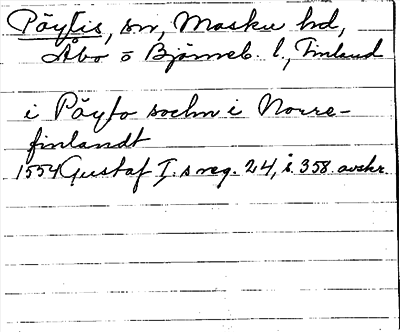 Pöytis, sn, Masku hd,
Åbo o Björneb. l., Finland
i Pöyto sochn i Norre-
finlandt
1554 Gustaf I.s reg. 24, s. 358. avskr.